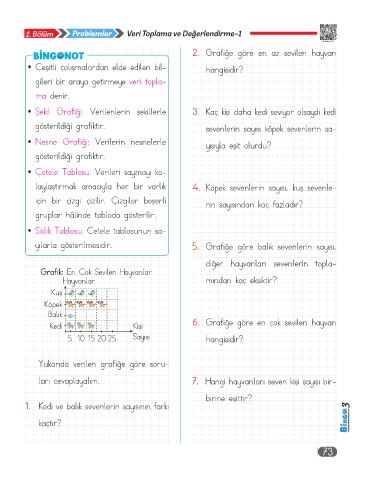 2. Bölüm Problemler Veri Toplama ve Değerlendirme-1
BİNGONOT
• Çeşitli çalışmalardan elde edilen bil-
gileri bir araya getirmeye veri topla-
ma denir.
• Şekil Grafiği: Verilenlerin şekillerle
gösterildiği grafiktir.
• Nesne Grafiği: Verilerin nesnelerle
gösterildiği grafiktir.
• Çetele Tablosu: Verileri saymayı ko-
laylaştırmak amacıyla her bir varlık
için bir çizgi çizilir. Çizgiler beşerli
gruplar hâlinde tabloda gösterilir.
• Sıklık Tablosu: Çetele tablosunun sa-
yılarla gösterilmesidir.
Grafik: En Çok Sevilen Hayvanlar
Hayvanlar
Kuş
Köpek
Balık
Kedi
Kişi
5 10 15 20 25 Sayısı
Yukarıda verilen grafiğe göre soru-
ları cevaplayalım.
1. Kedi ve balık sevenlerin sayısının farkı
kaçtır?
2. Grafiğe göre en az sevilen hayvan
hangisidir?
3. Kaç kişi daha kedi seviyor olsaydı kedi
sevenlerin sayısı köpek sevenlerin sa-
yısıyla eşit olurdu?
4. Köpek sevenlerin sayısı, kuş sevenle-
rin sayısından kaç fazladır?
5. Grafiğe göre balık sevenlerin sayısı
diğer hayvanları sevenlerin topla-
mından kaç eksiktir?
6. Grafiğe göre en çok sevilen hayvan
hangisidir?
7. Hangi hayvanları seven kişi sayısı bir-
birine eşittir?
BİNGO 3
73